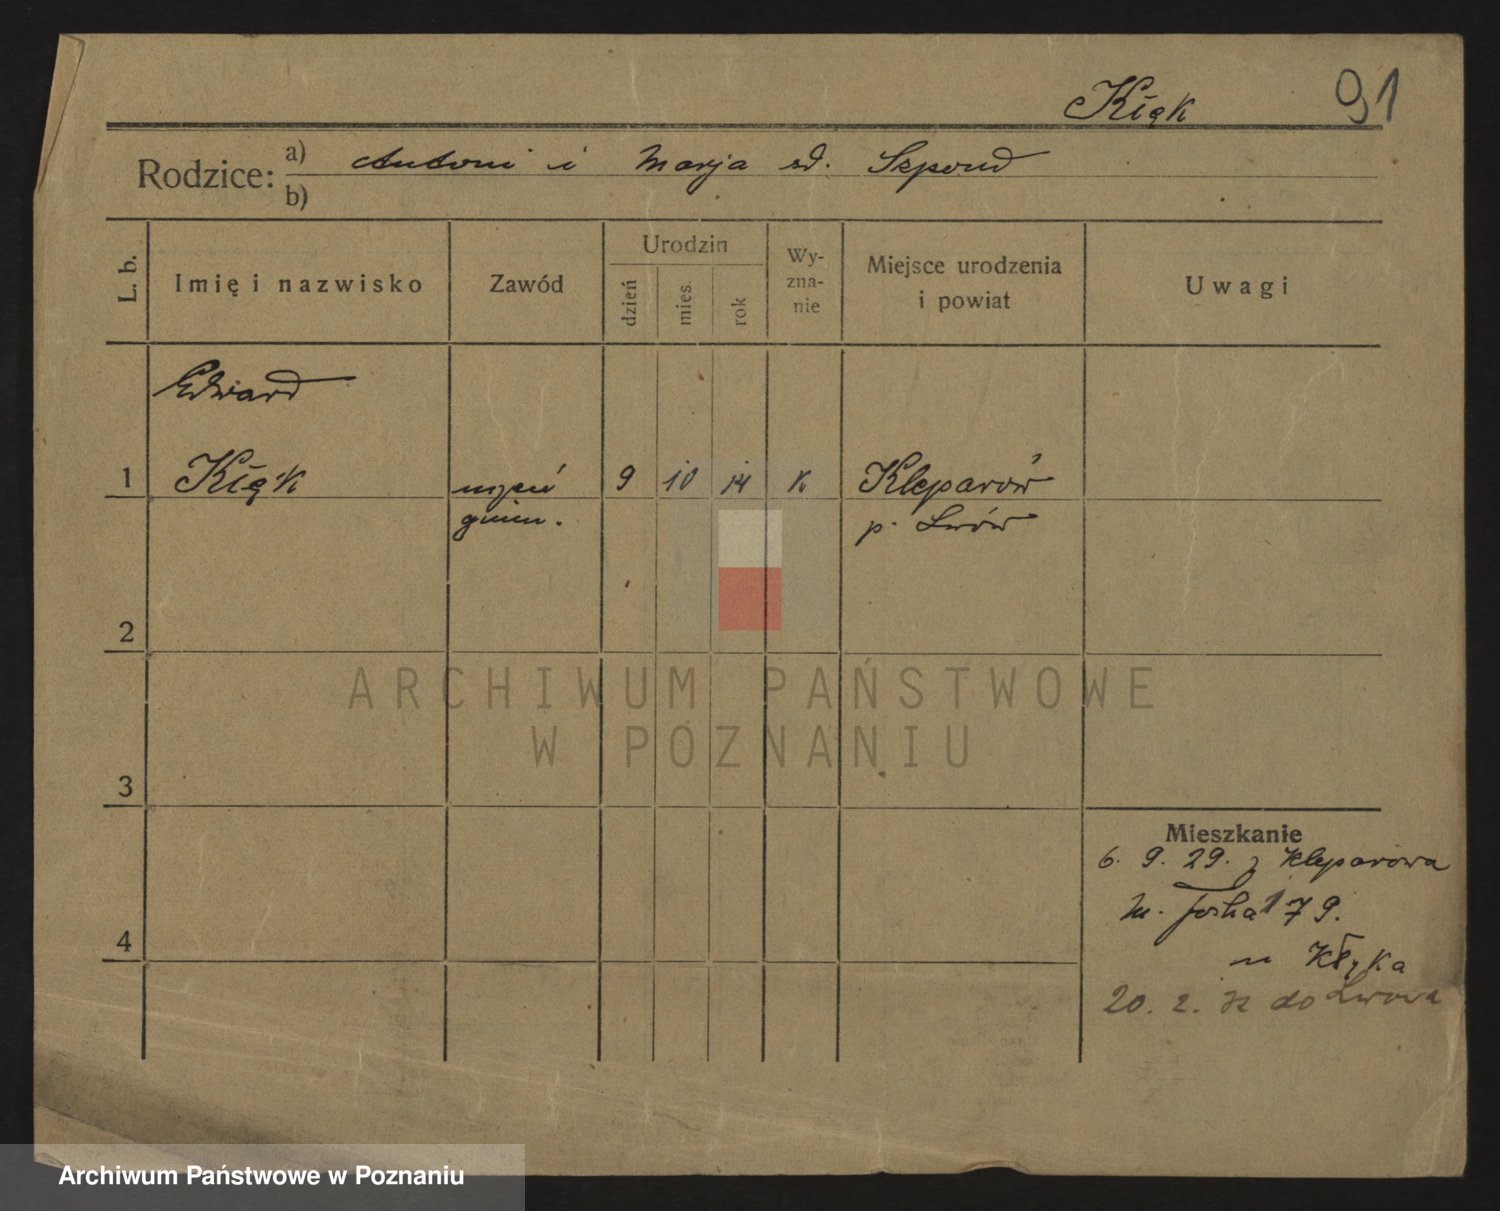 Kłęk 91
Rodzice: a) Antoni i Marja zd. Szpond
b)
L. b. Imię i nazwisko Zawód Urodzin dzień mies. rok Wy-zna-nie Miejsce urodzenia i powiat Uwagi
Edward
1 Kłęk uczeń 9 10 14 k Kleparów
gimn. p. Lwów
2
3
Mieszkanie
6. 9. 29. z Kleparowa
m. 179.
4
u Kłęka
20. 2. 32 do Lwowa
ARCHIWUM PAŃSTWOWE
W POZNANIU
Archiwum Państwowe w Poznaniu